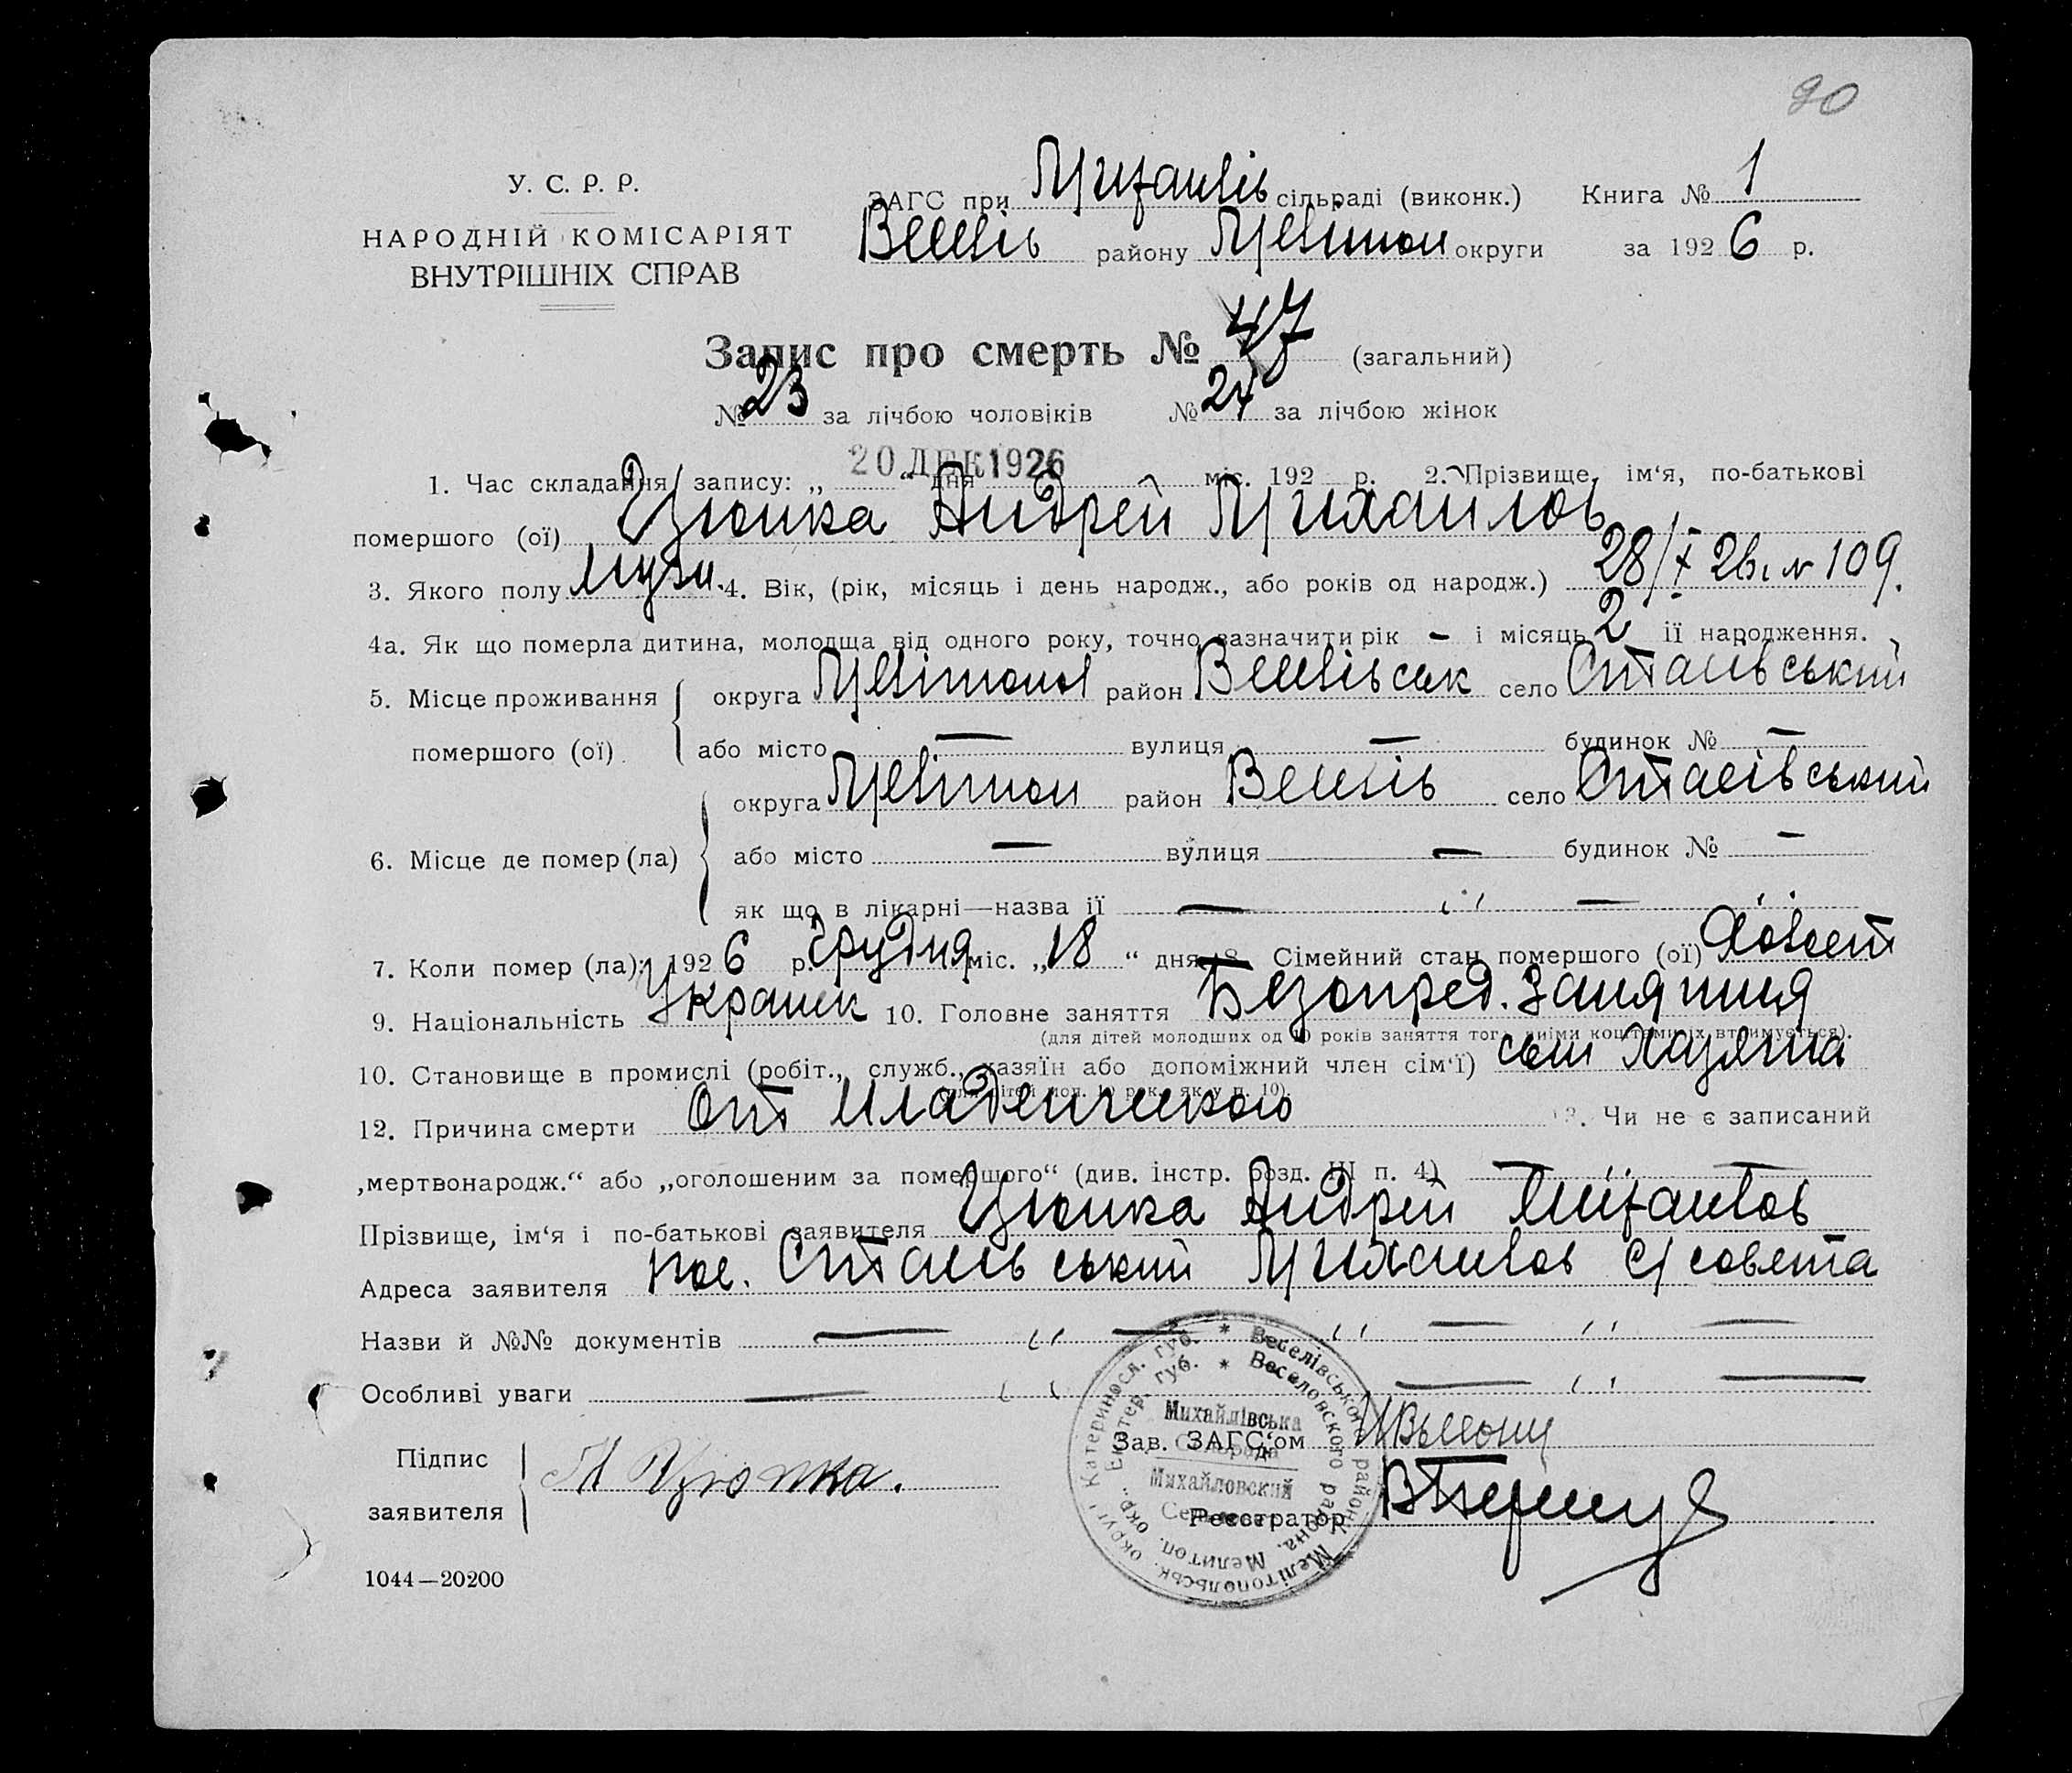 90
У. С. Р. Р.
НАРОДНІЙ КОМІСАРІЯТ
ВНУТРІШНІХ СПРАВ
ЗАГС при Михайлів сільраді (виконк.) Книга № 1
Веселів району Мелітоп округи за 1926 р.
Запис про смерть № 47 (загальний)
№ 23 за лічбою чоловіків № 24 за лічбою жінок
20 ДЕК 1926
1. Час складання запису: „ “ дня міс. 192 р. 2. Прізвище, ім‘я, по-батькові
помершого (ої) Цюпка Андрей Михаилов
3. Якого полу муж. 4. Вік, (рік, місяць і день народж., або років од народж.) 28/X 26 № 109.
4а. Як що померла дитина, молодща від одного року, точно зазначити рік – і місяць 2 її народження.
5. Місце проживання помершого (ої) округа Мелітопол район Веселівськ село
або місто — вулиця — будинок № —
6. Місце де помер (ла) округа Мелітоп район Веселів село
або місто — вулиця — будинок № —
як що в лікарні—назва її — " —
7. Коли помер (ла): 1926 р. грудня міс. „18“ дня 8. Сімейний стан помершого (ої)
9. Національність Украин 10. Головне заняття Безопред. занятия
(для дітей молодших од 10 років заняття того, чиїми коштами їх втримується).
10. Становище в промислі (робіт., служб., хазяїн або допоміжний член сім‘ї) сын Хазяина
(для дітей мол. 10 рок. як у п. 10).
12. Причина смерти от младенческого 13. Чи не є записаний
„мертвонародж.“ або „оголошеним за помершого“ (див. інстр. розд. III п. 4) — " —
Прізвище, ім‘я і по-батькові заявителя Цюпка Андрей
Адреса заявителя пос. С/совета
Назви й №№ документів — " — " — " —
Особливі уваги — " — " —
Підпис
заявителя Цюпка.
Зав. ЗАГС‘ом
Реєстратор
Катериносл. губ. * Веселівського району Мелітопольськ. округи
Екатер. губ. * Веселовского района. Мелитоп. окр.
Михайлівська
Сільрада
Михайловский
1044—20200